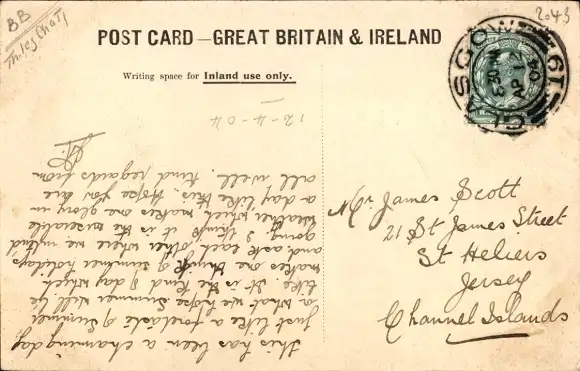 BB
2043
POST CARD—GREAT BRITAIN & IRELAND
Writing space for Inland use only.
GLASGOW
6.30 PM
AP 12
04
19
12-4-04
This has been a charming day
just like a foretaste of summer
or what we hope summer will be
like. It is the kind of day which
makes one think of summer holidays
and ask each other where we intend
going. I think it is the miserable
weather which makes one glory in
a day like this. Hope you are
all well. Kind regards from
Mr. James Scott
21 St James Street
St Heliers
Jersey
Channel Islands